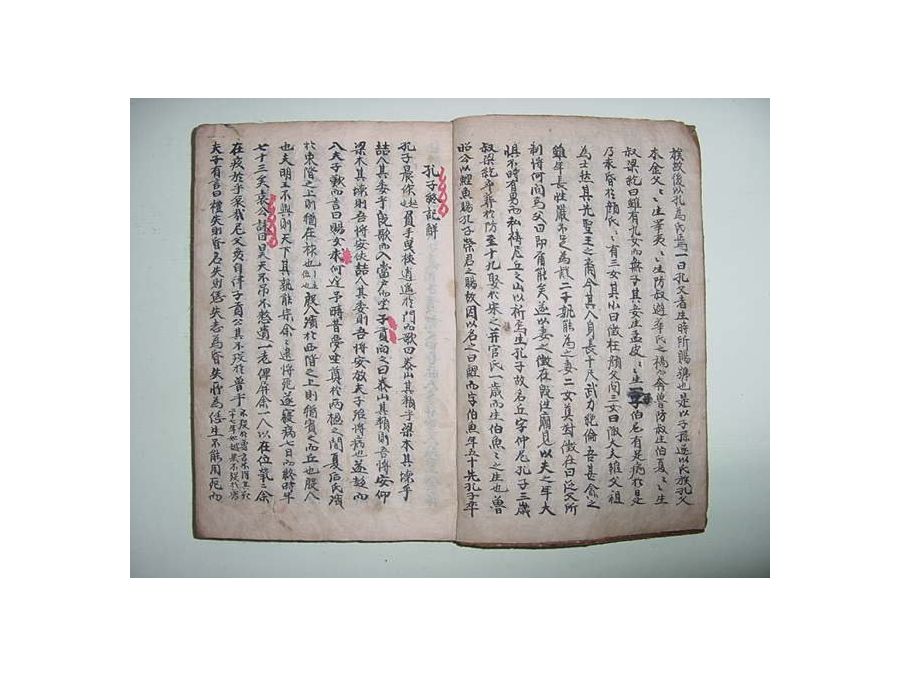 族故後以孔為氏焉一曰孔父者生時所賜號也是以子孫遂以氏族孔父
木金父〻〻生睾夷〻〻生防叔避華氏之禍而奔魯防叔生伯夏〻〻生
叔梁紇曰雖有九女而無子其妾生孟皮〻〻一字伯尼有足病於是
乃求昏於顏氏〻〻有三女其小曰徵在顏父問三女曰陬大夫雖父祖
為士然其先聖王之裔今其人身長十尺武力絕倫吾甚貪之
雖年長性嚴不足為疑三子孰能為之妻二女莫對徵在曰從父所
制將何問焉父曰即爾能矣遂以妻之徵在既往廟見以夫之年大
懼不時有男而私禱尼丘之山以祈焉生孔子故名丘字仲尼孔子三歲
叔梁紇卒葬於防至十九娶於宋之幵官氏一歲而生伯魚〻之生也魯
昭公以鯉魚賜孔子榮君之賜故因以名之曰鯉而字伯魚年五十先孔子卒
孔子終記解
孔子晨作起負手曳杖逍遙於門而歌曰泰山其頹乎梁木其壞乎
喆人其萎乎既歌而入當戶而坐子貢聞之曰泰山其頹則吾將安仰
梁木其壞則吾將安依喆人其萎則吾將安放夫子殆將病也遂趨而
入夫子歎而言曰賜女來何遲予時昔夢坐奠於兩楹之間夏后氏殯
於東階之上則猶在阼也殷人殯於兩楹之上則猶賓之而丘也殷人
也夫明王不興則天下其孰能宗余〻逮將死遂寢病七日而終時年
七十三矣哀公誄曰昊天不弔不憖遺一老俾屏余一人以在位煢〻余
在疚於乎哀哉尼父毋自律子貢曰公其不沒於魯乎
夫子有言曰禮失則昏名失則愆失志為昏失所為愆生不能用死而